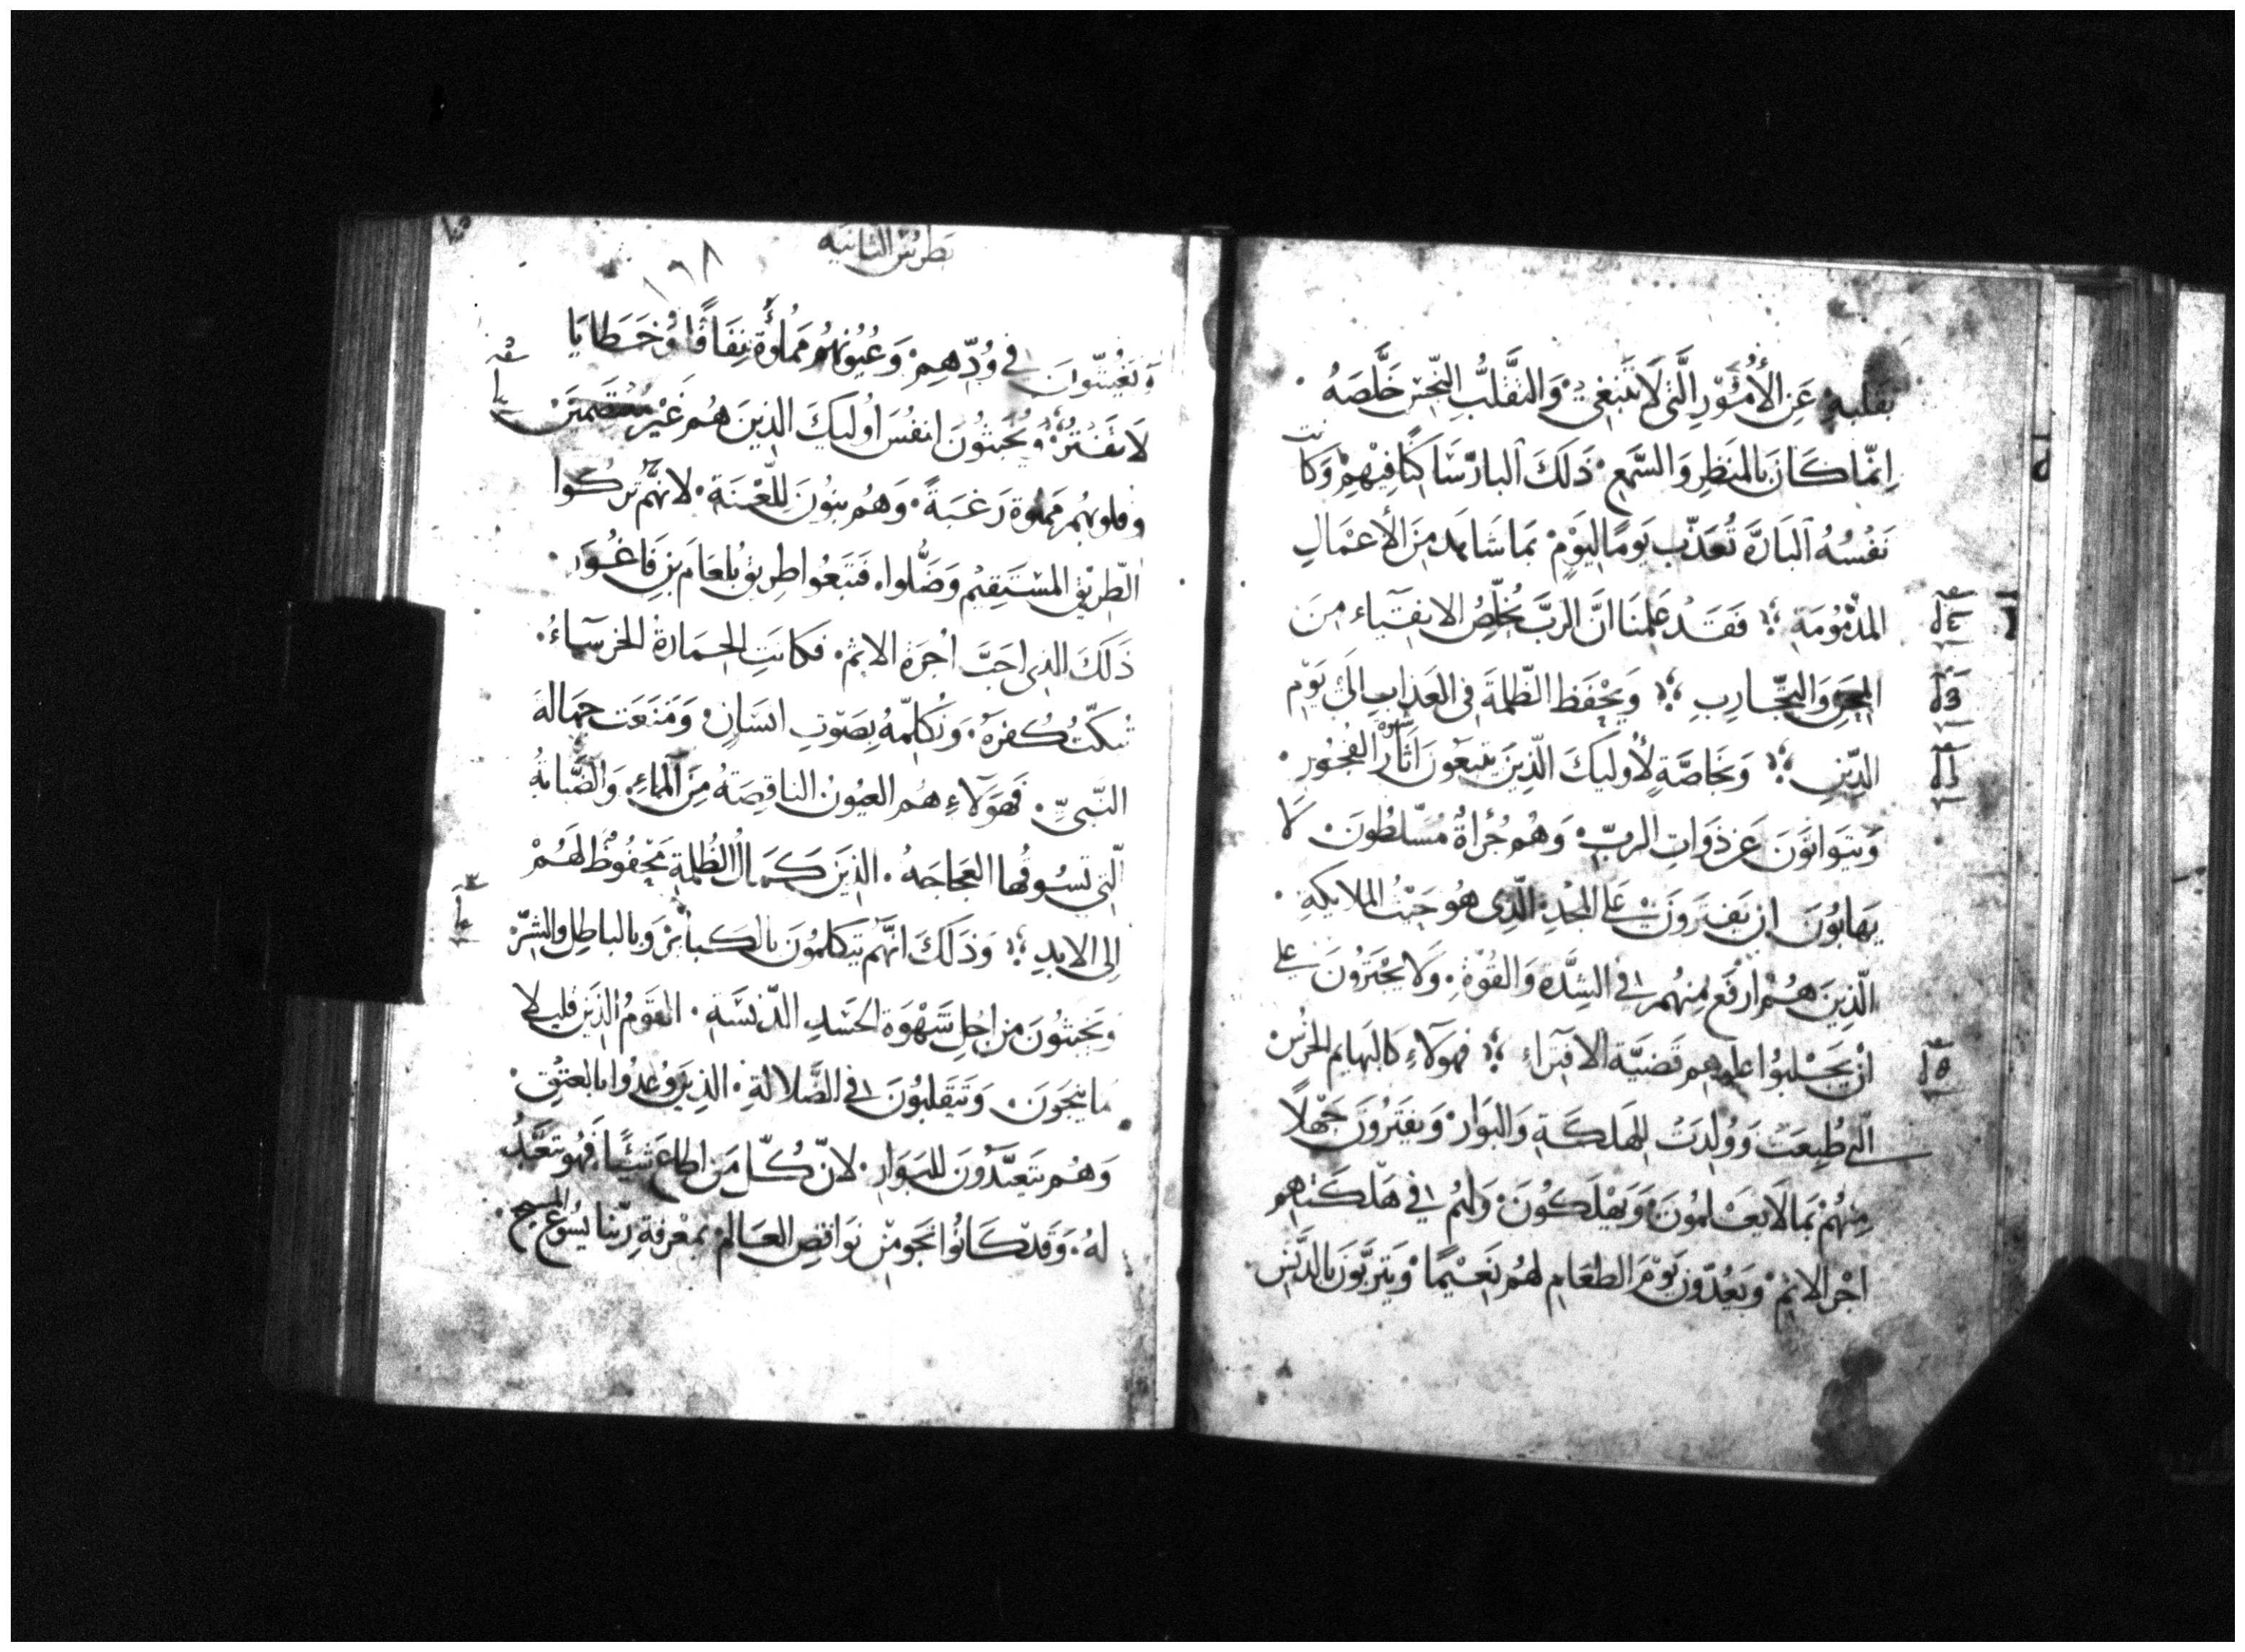 بقلبه عَنِ الأُمُوْرِ الَّتى لَا تَنبَغى وَالتقَّلبُ النِّجس خَلَّصَهُ
اِنمّا كَانَ بالمنَظِر وَالسَّمعِ ذَلَكَ البارّ سَاكنًا فيْهِمْ وَكانت
نَفْسُهُ البَارَّة تُعَذّب يَومًا ليَوْمٍ بمَا شَاهَد مِنَ الأعْمَالِ
المذْمُومَةِ فَقَدْ عَلمِنَا انَّ الربَّ يُخلِّصُ الاتقيَاء مِنَ
المِحَنِ وَالتجَّارِبِ وَيحْفَظ الظّلمةَ فى العَذابِ الىَ يَوْمِ
الدِّينِ وَبخَاصَّةٍ لأُولَيكَ الّذِينَ يتبعُونَ اثَارَ الفُجُورِ
وَيتَوانَوَنَ عَن ذوَاتِ الربّ وَهُم جُرْأةٌ مُسَلّطُونَ لا
يَهابُونَ ان يَفترَونَ عَلى المجْدِ الّذِى هُو حَيْثُ الملايكةِ
الّذِينَ هُمْ ارْفَع مِنهُم فى الشِدَّة وَالقُوَّةِ وَلا يجْترَونَ على
انْ يَجَلبُوا عَليهم قَضيَّة الافتِرَاءِ فهَولآءِ كَالبَهايم الخُرْس
التى طُبِعَتْ وَوُلِدَتْ للِهَلكَةِ وَالبَوَار وَيفَترُونَ جَهْلًا
مِنْهُمْ بمَا لا يَعْلمُونَ وَيَهْلكُونَ وَلهُم فى هَلكَتهِم
اجْر الاثم وَيَعُدّونَ يَوْمَ الطعَامِ لهُم نَعِيْمًا وَيَترَبَّوَنَ بالدَّنسِ
بطرس الثانيه
١٦٨
فى وُدّهِمْ وَعُيُونهُم مَملُوَّة نِفَاقًا وَخَطايَا
لَا تَفْتُرُ وَيُخَبثُونَ انفُسَ اُولَيكَ الذِينَ هُم غَيْرُ
وقلوبُهُم مَملُوة رَغبَةً وَهُم بَنُونَ لِلّعْنَةِ لانَّهُم تَركُوا
الطّرِيْقَ المسْتَقِيْم وَضَّلوا فتَبَعُوا طَرِيق بُلعَامَ بن فَاغُورَ
ذَلَكَ الذِى احَبَّ اجْرَة الاثم فكانتِ الحمَارةُ الخرسَاءُ
تُبكّتُ كُفرَهُ وَتكلّمهُ بصَوتِ انسَانٍ وَمَنعَت جهَالة
النّبىِّ فَهَولَاءِ هُم العُيُون الناقِصَةُ مِنَ المَاءِ وَالضّبَابةُ
الّتى تسُوقُها العجَاجَهُ الذِينَ كمَالُ الظُلمةِ محْفُوظٌ لَهُمْ
الى الابدِ وَذلَكَ انهَّم يَتَكلمُونَ بالكَبائرِ وَبالباطِل وَالشرّ
وَيخبثُونَ من اجْلِ شَهْوَة الجسَدِ الدّنسَةِ القَومُ الّذِينَ قليلا
مَا ينجَونَ وَيَتقَلبُونَ فى الضَّلالةِ الذينَ وُعدُوا بالعتقِ
وَهُم يَتعَبَّدُونَ للبَوَارِ لانّ كُلّ مَن اطَاعَ شَيئًا فَهُو يتعَبَّدُ
لهُ وَقَدْ كَانُوا نجَو مِنْ نوَاقِصِ العَالم بمَعْرفةِ ربّنا يسُوع المسيح